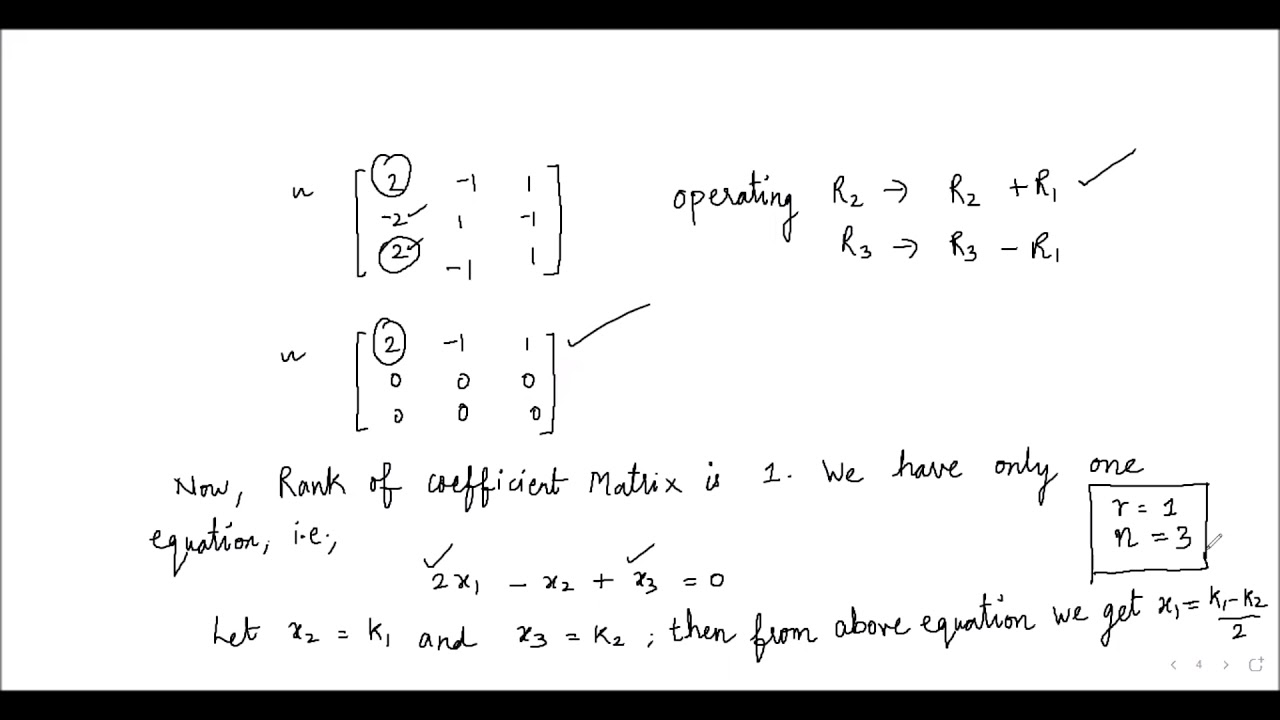 ~ [ 2 -1 1 operating R₂ → R₂ + R₁ ✓
-2 ✓ 1 -1
2 ✓ -1 1 ] R₃ → R₃ - R₁
~ [ 2 -1 1 ✓
0 0 0
0 0 0 ]
Now, Rank of coefficient Matrix is 1. We have only one
equation, i.e.,
r = 1
n = 3
2x₁ - x₂ + x₃ = 0
Let x₂ = K₁ and x₃ = K₂ ; then from above equation we get x₁ = (K₁-K₂)/2
< 4 >